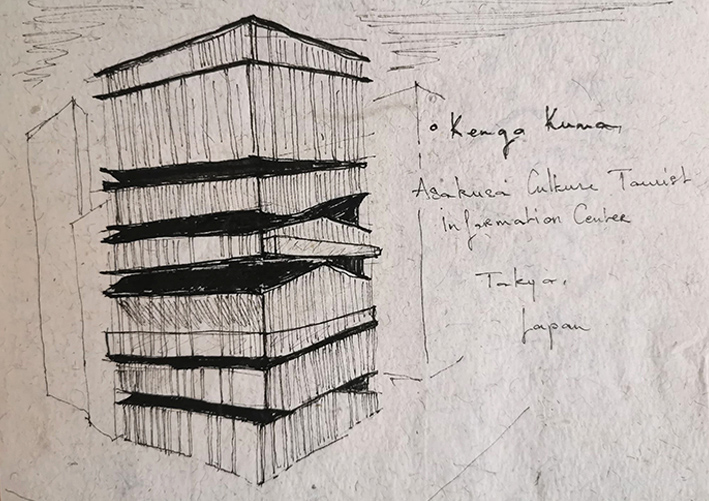 Kengo Kuma,
Asakusa Culture Tourist
Information Center
Tokyo,
Japan